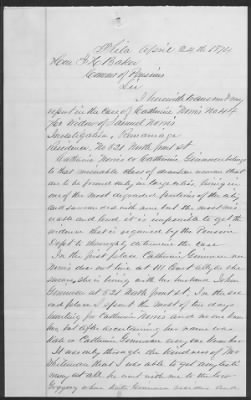 Phila April 24th 1874
Hon J H Baker
Comms of Pensions
Sir
I herewith transmit my
report in the case of Catherine Norris No
the Widow of Samuel Norris
Investigation, Remarriage
Residence No 821 North front st
Catherine Norris or Catherine belongs
to that miserable class of drunken women that
are to be found only in large cities, being in
one of the most degraded portions of the city
and surrounded with and but the most
and it is impossible to get the
evidence that is required by the Pension
Dept to thoroughly determine the case
In the first place Catherine or
Norris does not live at 111 Court ally, as she
says she is living with her husband John
at 821 North front st, In the sec
ond place I spent the most of the day
hunting for Catherine Norris and no one knew
her, but after ascertaining her name was
Kate or Catherine every one knew her
It was only through the kindness of Mr
that I was able to get any testi
mony at all, he went with me to the
when Kate and